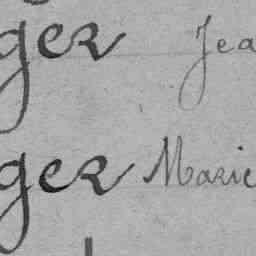 ger Jea
ger Marie